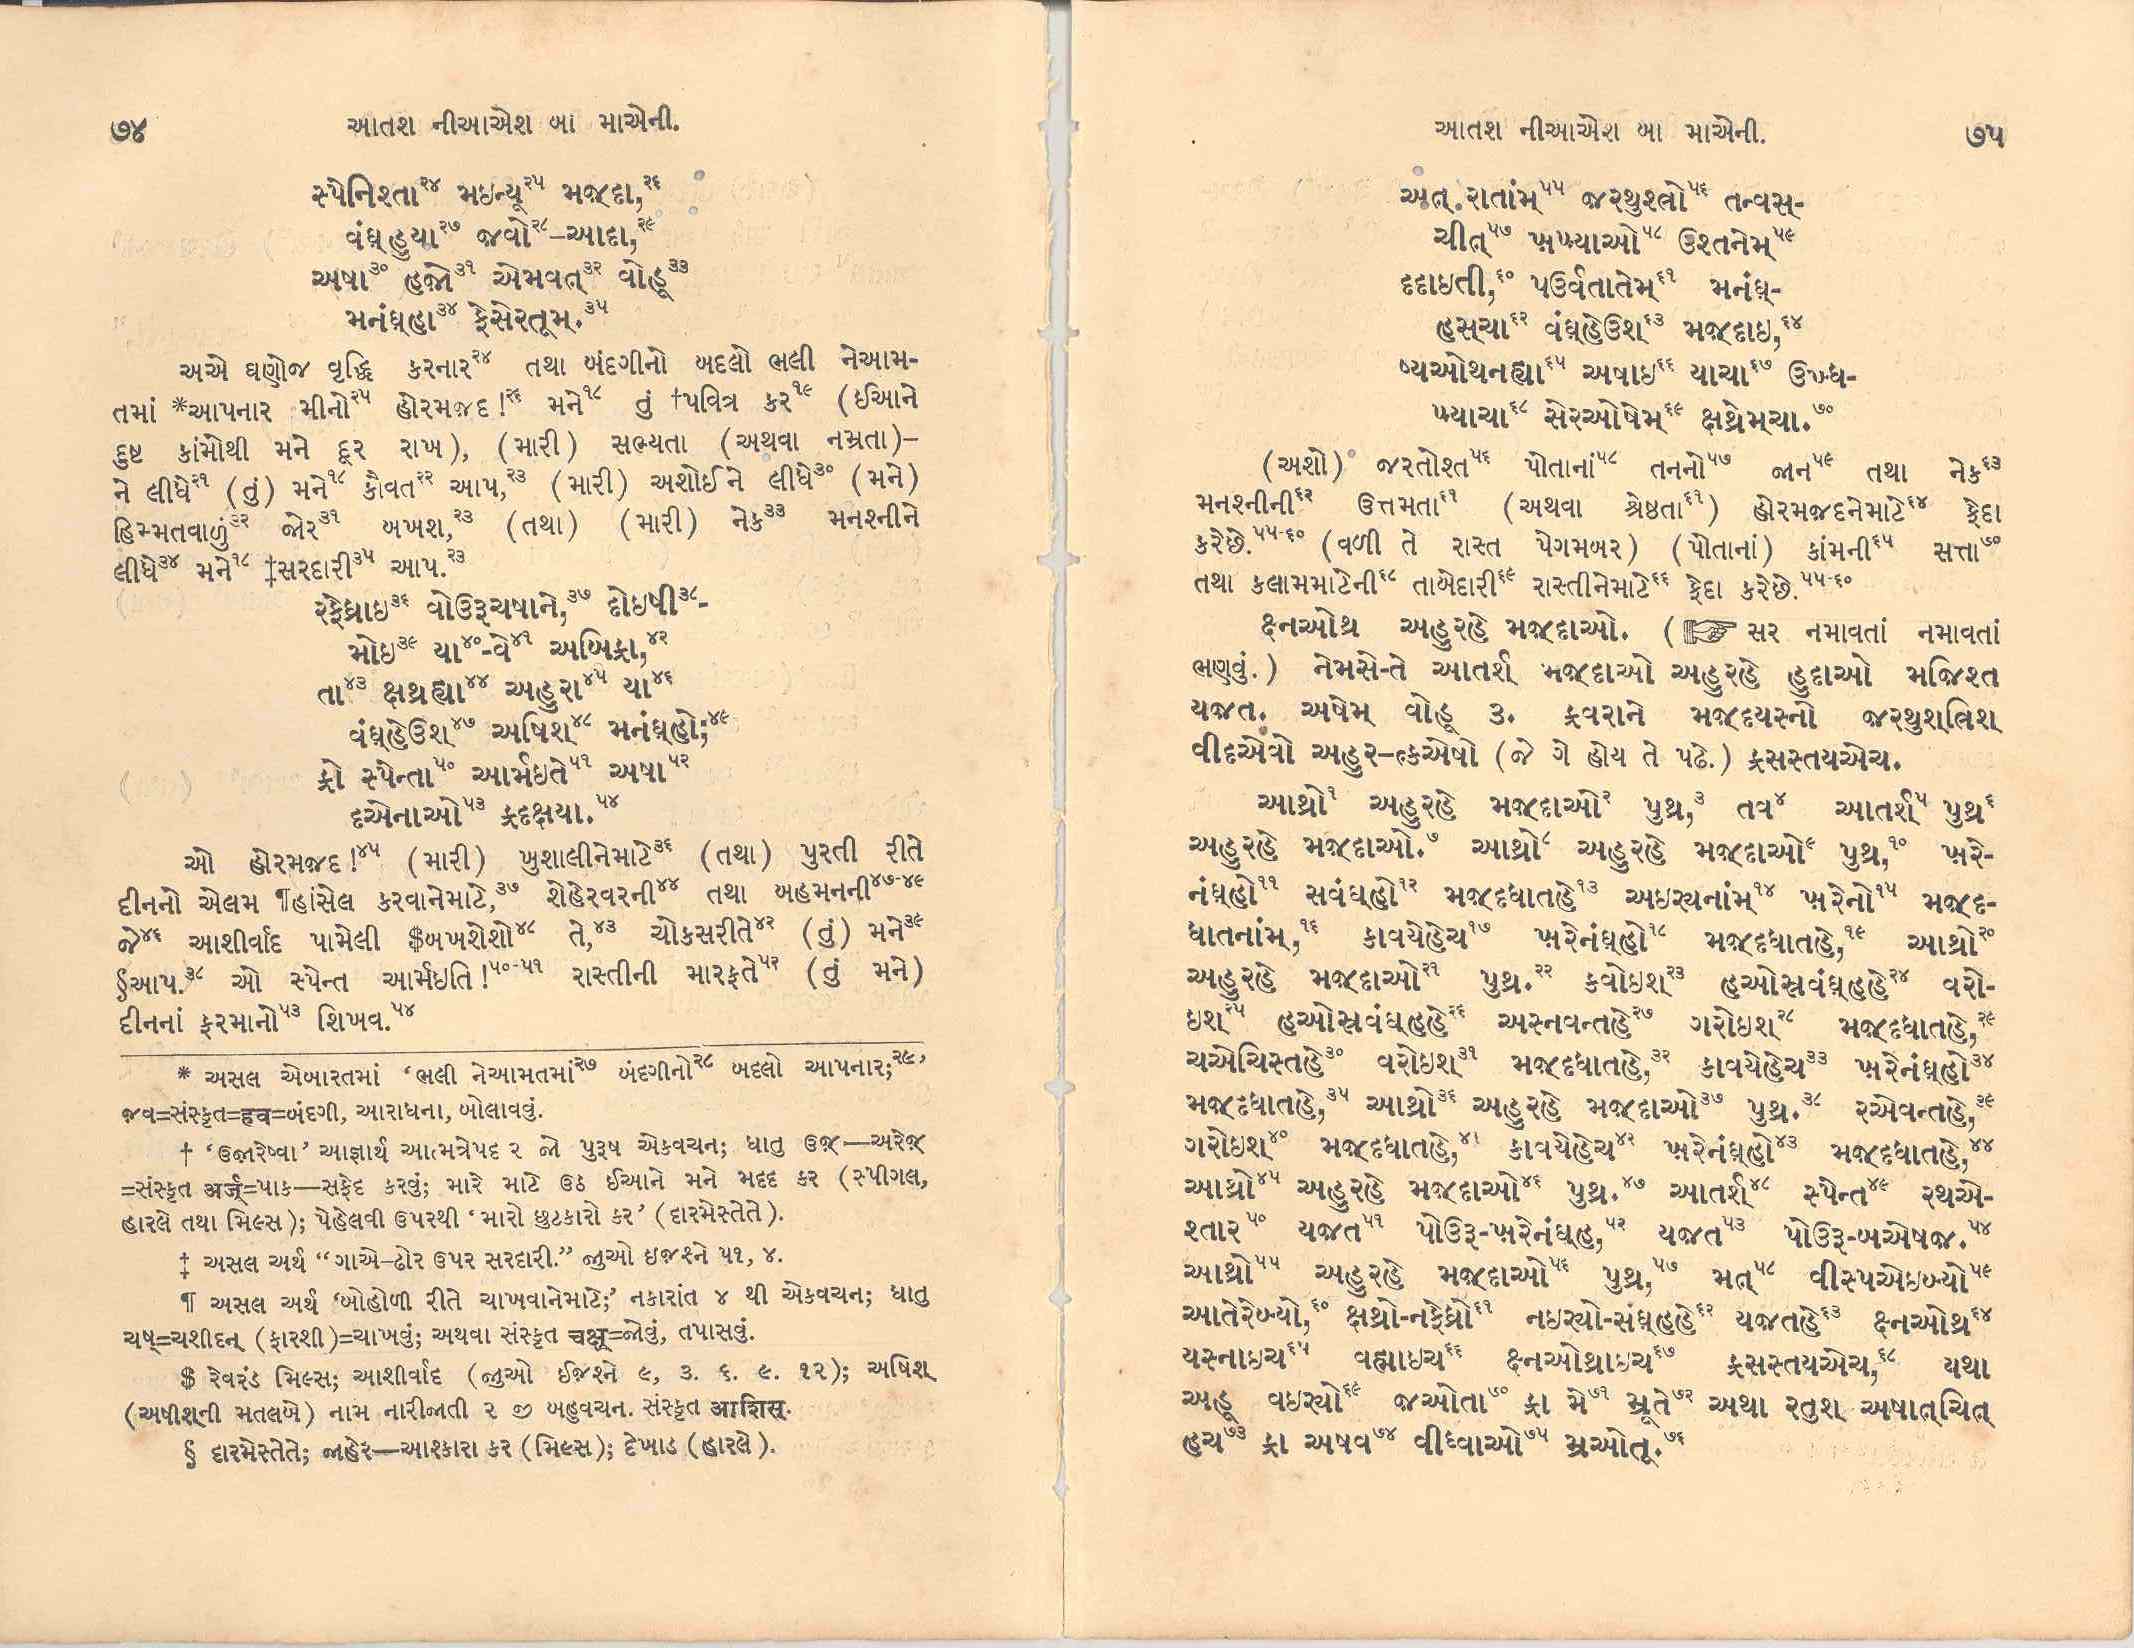 ૭૪ આતશ નીઆએશ બા માએની.
સ્પેનિશ્તા૨૪ મઇન્યૂ૨૫ મજ઼્દા,૨૬
વંઘ્હુયા૨૭ જ઼વો૨૮–આદા,૨૯
અષા૩૦ હજ઼ો૩૧ એમવત્૩૨ વોહૂ૩૩
મનંઘ્હા૩૪ ફ઼ેસેરતૂમ્.૩૫
અએ ઘણોજ વૃદ્ધિ કરનાર૨૪ તથા બંદગીનો બદલો ભલી નેઆમ-
તમાં *આપનાર મીનો૨૫ હોરમજ઼દ!૨૬ મને૧૮ તું †પવિત્ર કર૧૯ (ઈઆને
દુષ્ટ કાંમોથી મને દૂર રાખ), (મારી) સભ્યતા (અથવા નમ્રતા)–
ને લીધે૨૧ (તું) મને૧૮ કૌવત૨૨ આપ,૨૩ (મારી) અશોઈને લીધે૩૦ (મને)
હિમ્મતવાળું૩૨ જોર૩૧ બખશ,૨૩ (તથા) (મારી) નેક૩૩ મનશ્નીને
લીધે૩૪ મને૧૮ ‡સરદારી૩૫ આપ.૨૩
રફેધ્રાઇ૩૬ વોઉરૂચષાને,૩૭ દોઇષી૩૮-
મોઇ૩૯ યા૪૦-વે૪૧ અબિફ઼્રા,૪૨
તા૪૩ ક્ષથ્રહ્યા૪૪ અહુરા૪૫ યા૪૬
વંઘ્હેઉશ્૪૭ અષિશ્૪૮ મનંઘ્હો;૪૯
ફ઼્રો સ્પેન્તા૫૦ આર્મઇતે૫૧ અષા૫૨
દએનાઓ૫૩ ફ઼્રદક્ષયા.૫૪
ઓ હોરમજ઼દ!૪૫ (મારી) ખુશાલીનેમાટે૩૬ (તથા) પુરતી રીતે
દીનનો એલમ ¶હાંસેલ કરવાનેમાટે,૩૭ શેહેરવરની૪૪ તથા બહમનની૪૭-૪૯
જે૪૬ આશીર્વાદ પામેલી $બખશેશો૪૮ તે,૪૩ ચોકસરીતે૪૨ (તું) મને૩૯
§આપ.૩૮ ઓ સ્પેન્ત આર્મઇતિ!૫૦-૫૧ રાસ્તીની મારફતે૫૨ (તું મને)
દીનનાં ફરમાનો૫૩ શિખવ.૫૪
* અસલ એબારતમાં ‘ભલી નેઆમતમાં૨૭ બંદગીનો૨૮ બદલો આપનાર;૨૯’
જ઼વ=સંસ્કૃત=हव=બંદગી, આરાધના, બોલાવવું.
† ‘ઉજ઼ારેષ્વા’ આજ્ઞાર્થ આત્મત્રેપદ ૨ જો પુરૂષ એકવચન; ધાતુ ઉજ઼્—અરેજ઼્
=સંસ્કૃત अर्ज्=પાક—સફેદ કરવું; મારે માટે ઉઠ ઈઆને મને મદદ કર (સ્પીગલ,
હારલે તથા મિલ્સ); પેહેલવી ઉપરથી ‘મારો છુટકારો કર’ (દારમેસ્તેતે).
‡ અસલ અર્થ “ગાએ–ઢોર ઉપર સરદારી.” જુઓ ઇજ઼શ્ને ૫૧, ૪.
¶ અસલ અર્થ ‘બોહોળી રીતે ચાખવાનેમાટે;’ નકારાંત ૪ થી એકવચન; ધાતુ
ચષ્=ચશીદન્ (ફારશી)=ચાખવું; અથવા સંસ્કૃત चक्ष्=જોવું, તપાસવું.
$ રેવરંડ મિલ્સ; આશીર્વાદ (જુઓ ઈજ઼શ્ને ૯, ૩. ૬. ૯. ૧૨); અષિશ્
(અષીશ્ની મતલબે) નામ નારીજાતી ૨ જી બહુવચન. સંસ્કૃત आशिस्.
§ દારમેસ્તેતે; જાહેર—આશ્કારા કર (મિલ્સ); દેખાડ (હારલે).
આતશ નીઆએશ બા માએની. ૭૫
અત્. રાતાંમ્૫૫ જ઼રથુશ્ત્રો૫૬ તન્વસ્-
ચીત્૫૭ ખ઼ખ્યાઓ૫૮ ઉશ્તનેમ્૫૯
દદાઇતી,૬૦ પઉર્વતાતેમ્૬૧ મનંઘ્-
હસ્ચા૬૨ વંઘ્હેઉશ્૬૩ મજ઼્દાઇ,૬૪
ષ્યઓથનહ્યા૬૫ અષાઇ૬૬ યાચા૬૭ ઉખ્ધ-
ખ્યાચા૬૮ સેરઓષેમ્૬૯ ક્ષથ્રેમ્ચા.૭૦
(અશો) જરતોશ્ત૫૬ પોતાનાં૫૮ તનનો૫૭ જાન૫૯ તથા નેક૬૩
મનશ્નીની૬૨ ઉત્તમતા૬૧ (અથવા શ્રેષ્ઠતા૬૧) હોરમજ઼દનેમાટે૬૪ ફ઼ેદા
કરેછે.૫૫-૬૦ (વળી તે રાસ્ત પેગમબર) (પોતાનાં) કાંમની૬૫ સત્તા૭૦
તથા કલામમાટેની૬૮ તાબેદારી૬૯ રાસ્તીનેમાટે૬૬ ફ઼ેદા કરેછે.૫૫-૬૦
ક્ષ્નઓથ્ર અહુરહે મજ઼્દાઓ. (☞ સર નમાવતાં નમાવતાં
ભણવું.) નેમસે-તે આતર્શ્ મજ઼્દાઓ અહુરહે હુદાઓ મજ઼િશ્ત
યજ઼ત. અષેમ્ વોહૂ ૩. ફ઼્રવરાને મજ઼્દયસ્નો જ઼રથુશ્ત્રિશ્
વીદએવો અહુર–ત્કએષો (જે ગે હોય તે પઢે.) ફ઼્રસસ્તયએચ.
આથ્રો૧ અહુરહે મજ઼્દાઓ૨ પુથ્ર,૩ તવ૪ આતર્શ્૫ પુથ્ર૬
અહુરહે મજ઼્દાઓ.૭ આથ્રો૮ અહુરહે મજ઼્દાઓ૯ પુથ્ર,૧૦ ખ઼રે-
નંઘ્હો૧૧ સવંઘ્હો૧૨ મજ઼્દધાતહે૧૩ અઇર્યનાંમ્૧૪ ખ઼રેનો૧૫ મજ઼્દ-
ધાતનાંમ્,૧૬ કાવયેહેચ૧૭ ખ઼રેનંઘ્હો૧૮ મજ઼્દધાતહે,૧૯ આથ્રો૨૦
અહુરહે મજ઼્દાઓ૨૧ પુથ્ર.૨૨ કવોઇશ્૨૩ હઓસ્રવંઘ્હહે૨૪ વરો-
ઇશ્૨૫ હઓસ્રવંઘ્હહે૨૬ અસ્નવન્તહે૨૭ ગરોઇશ્૨૮ મજ઼્દધાતહે,૨૯
ચએચિસ્તહે૩૦ વરોઇશ્૩૧ મજ઼્દધાતહે,૩૨ કાવયેહેચ૩૩ ખ઼રેનંઘ્હો૩૪
મજ઼્દધાતહે,૩૫ આથ્રો૩૬ અહુરહે મજ઼્દાઓ૩૭ પુથ્ર.૩૮ રએવન્તહે,૩૯
ગરોઇશ્૪૦ મજ઼્દધાતહે,૪૧ કાવયેહેચ૪૨ ખ઼રેનંઘ્હો૪૩ મજ઼્દધાતહે,૪૪
આથ્રો૪૫ અહુરહે મજ઼્દાઓ૪૬ પુથ્ર.૪૭ આતર્શ્૪૮ સ્પેન્ત૪૯ રથએ-
શ્તાર૫૦ યજ઼ત૫૧ પોઉરૂ-ખ઼રેનંઘ્હ,૫૨ યજ઼ત૫૩ પોઉરૂ-બએષજ઼.૫૪
આથ્રો૫૫ અહુરહે મજ઼્દાઓ૫૬ પુથ્ર,૫૭ મત્૫૮ વીસ્પએઇબ્યો૫૯
આતેરેબ્યો,૬૦ ક્ષથ્રો-નફ઼ેધ્રો૬૧ નઇર્યો-સંઘ્હહે૬૨ યજ઼તહે૬૩ ક્ષ્નઓથ્ર૬૪
યસ્નાઇચ૬૫ વહ્માઇચ૬૬ ક્ષ્નઓથ્રાઇચ૬૭ ફ઼્રસસ્તયએચ,૬૮ યથા
અહૂ વઇર્યો૬૯ જ઼ઓતા૭૦ ફ઼્રા મે૭૧ મ્રૂતે૭૨ અથા રતુશ્ અષાત્ચિત્
હચ૭૩ ફ઼્રા અષવ૭૪ વીધ્વાઓ૭૫ મ્રઓતૂ.૭૬